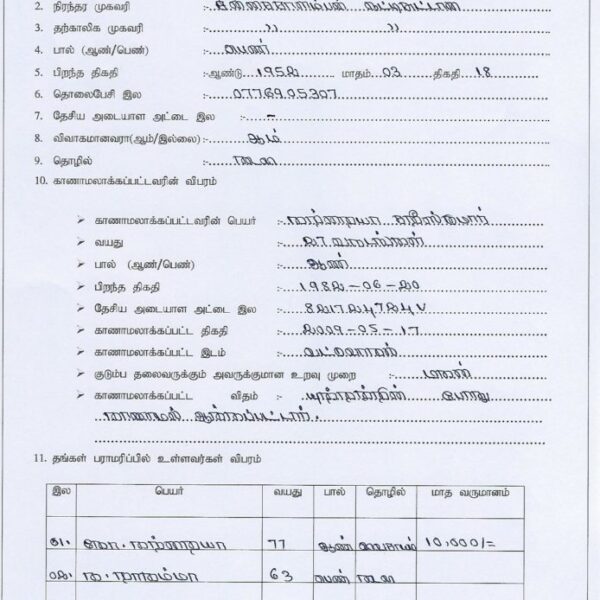 2. நிரந்தர முகவரி :-
3. தற்காலிக முகவரி :- ,, ,,
4. பால் (ஆண்/பெண்) :- பெண்
5. பிறந்த திகதி :-ஆண்டு 1952 மாதம் 03 திகதி 18
6. தொலைபேசி இல :- 0776905307
7. தேசிய அடையாள அட்டை இல :- -
8. விவாகமானவரா(ஆம்/இல்லை) :- ஆம்
9. தொழில் :-
10. காணாமலாக்கப்பட்டவரின் விபரம்
➤ காணாமலாக்கப்பட்டவரின் பெயர் :-
➤ வயது :- 27 வயது
➤ பால் (ஆண்/பெண்) :- ஆண்
➤ பிறந்த திகதி :- 1982-06-20
➤ தேசிய அடையாள அட்டை இல :-
➤ காணாமலாக்கப்பட்ட திகதி :- 2009-05-17
➤ காணாமலாக்கப்பட்ட இடம் :- வட்டுவாகல்
➤ குடும்ப தலைவருக்கும் அவருக்குமான உறவு முறை :- மகன்
➤ காணாமலாக்கப்பட்ட விதம் :- யுத்தத்தின் போது
காணாமல் ஆக்கப்பட்டார்.
11. தங்கள் பராமரிப்பில் உள்ளவர்கள் விபரம்
இல பெயர் வயது பால் தொழில் மாத வருமானம்
01. 77 ஆண் விவசாயம் 10,000/=
02. 63 பெண்